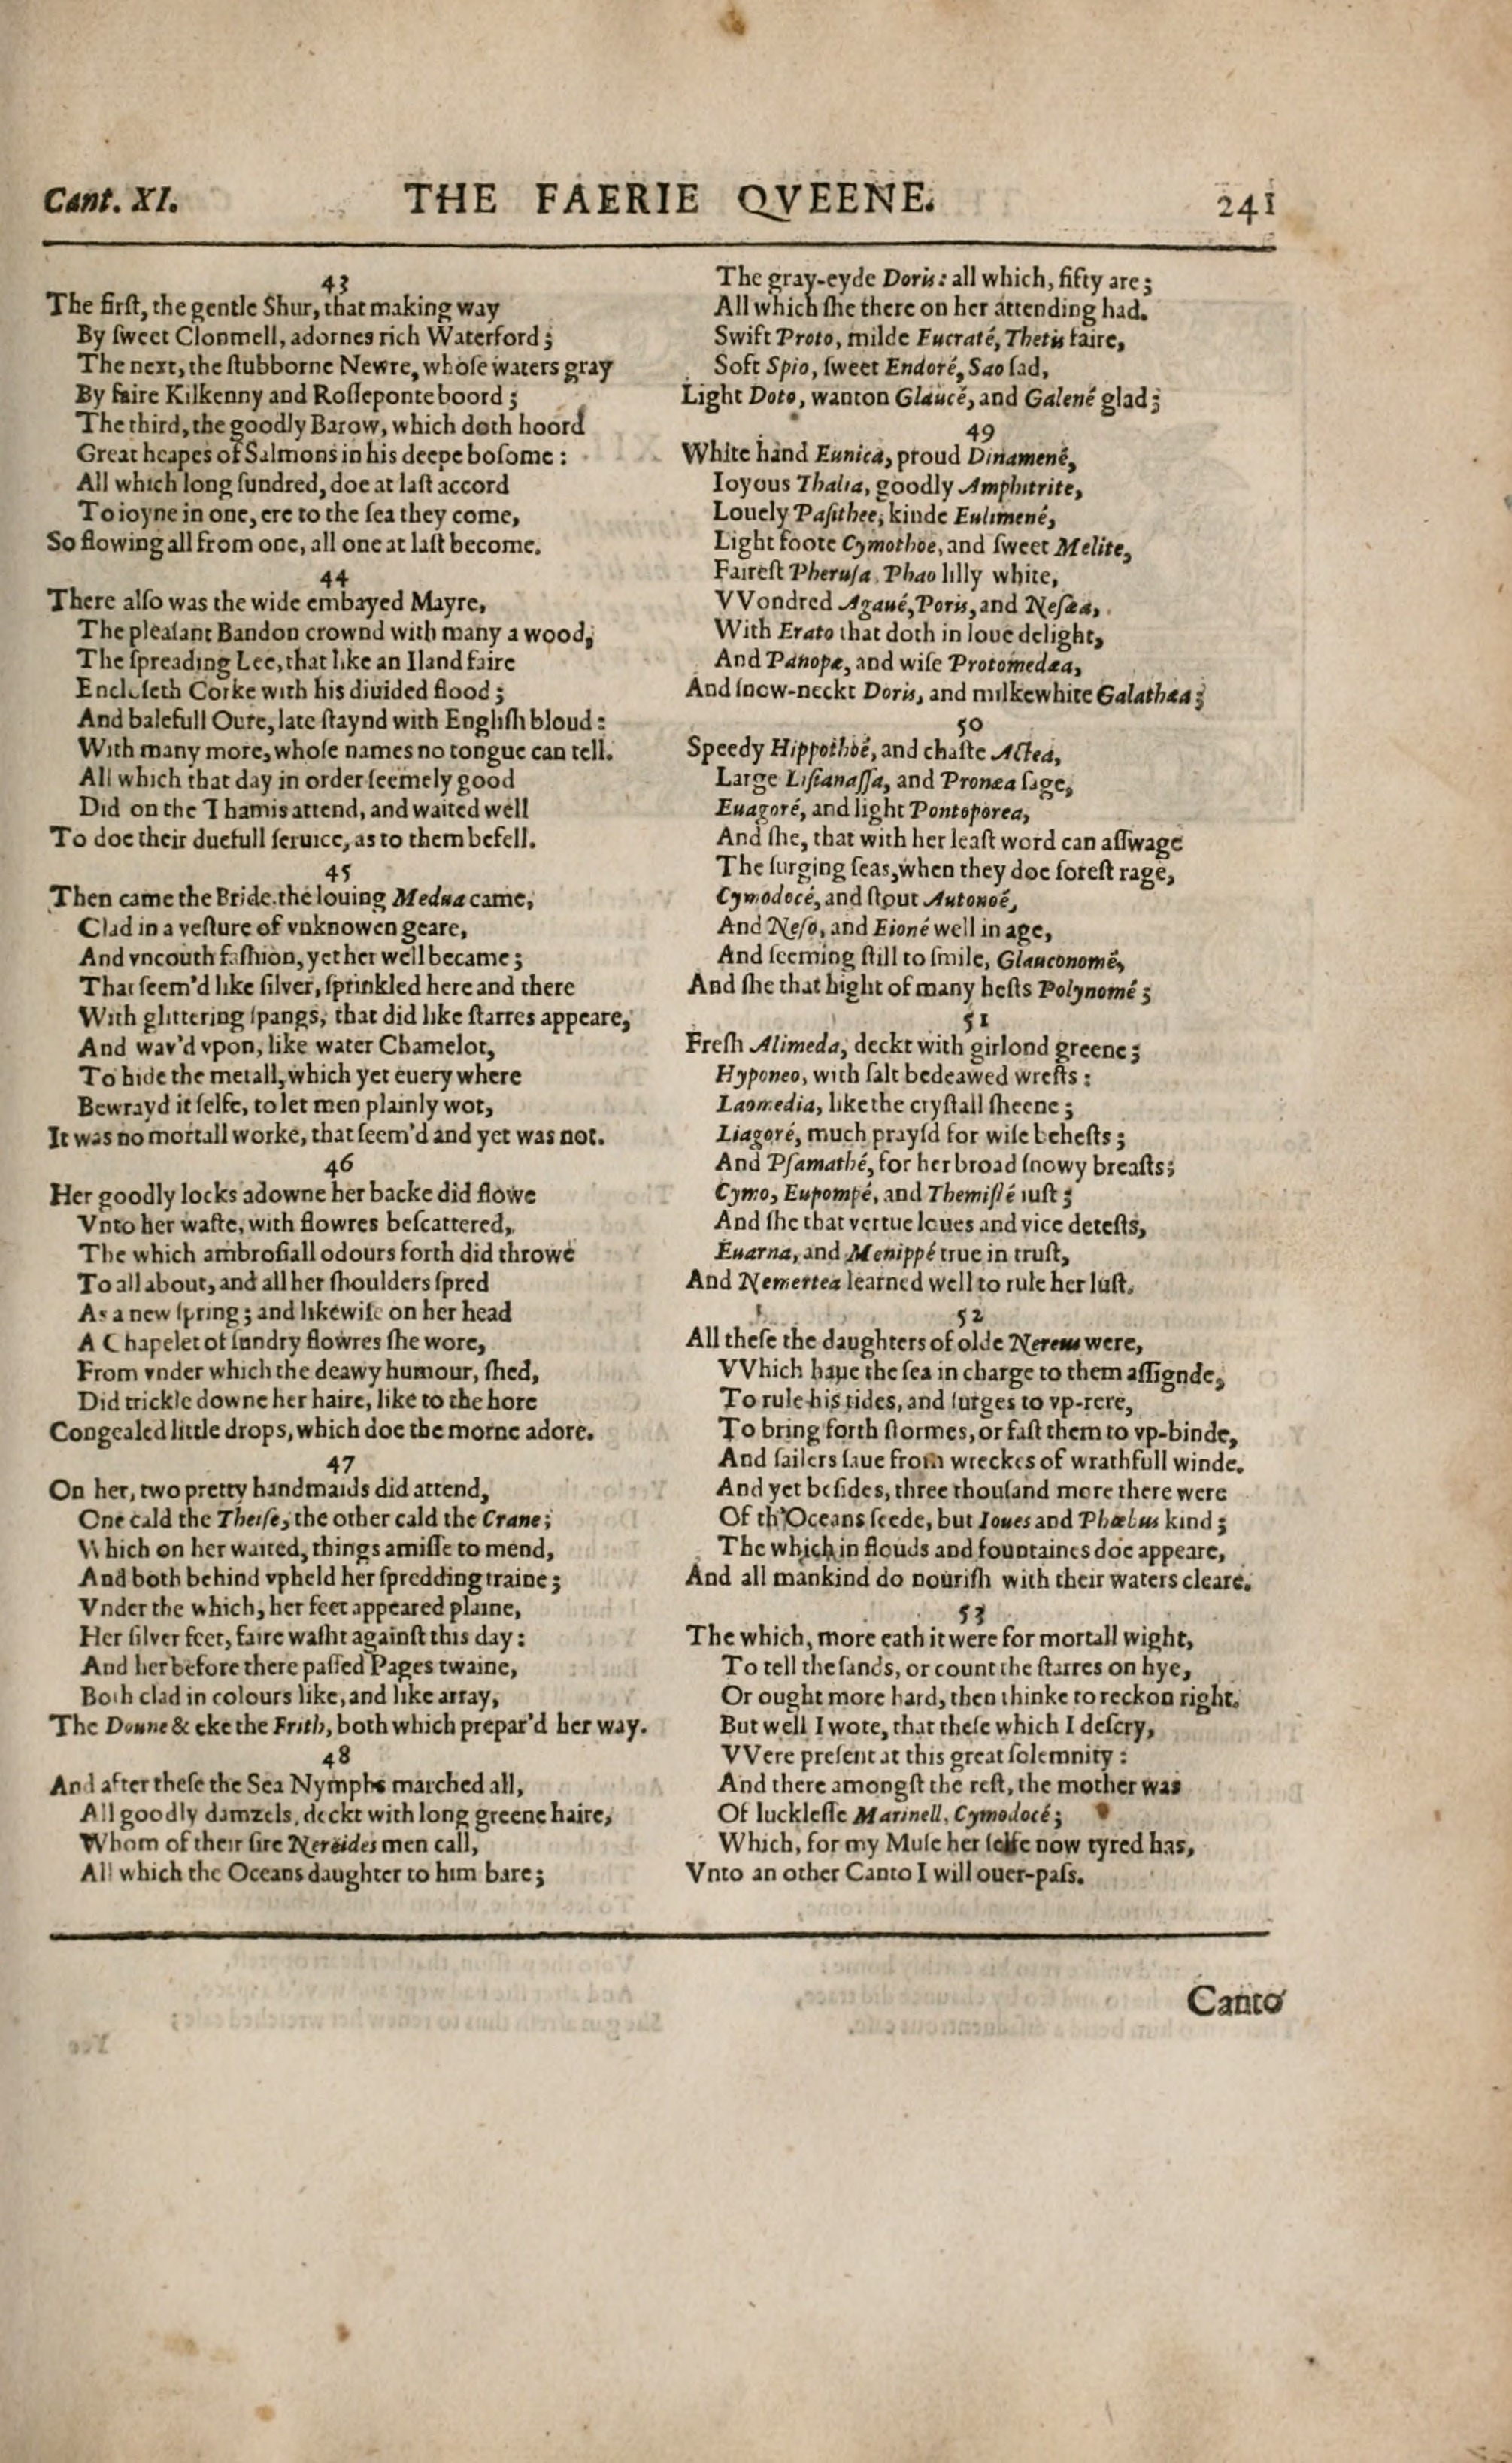 Cant. XI. THE FAERIE QVEENE. 241
43
The firſt, the gentle Shur, that making way
By ſweet Clonmell, adornes rich Waterford;
The next, the ſtubborne Newre, whoſe waters gray
By faire Kilkenny and Roſſeponte boord;
The third, the goodly Barow, which doth hoord
Great heapes of Salmons in his deepe boſome:
All which long ſundred, doe at laſt accord
To ioyne in one, ere to the ſea they come,
So flowing all from one, all one at laſt become.
44
There alſo was the wide embayed Mayre,
The pleaſant Bandon crownd with many a wood,
The ſpreading Lee, that like an Iland faire
Encloſeth Corke with his diuided flood;
And balefull Oure, late ſtaynd with Engliſh bloud:
With many more, whoſe names no tongue can tell.
All which that day in order ſeemely good
Did on the Thamis attend, and waited well
To doe their duefull ſeruice, as to them befell.
45
Then came the Bride, the louing Medua came,
Clad in a veſture of vnknowen geare,
And vncouth faſhion, yet her well became;
That ſeem'd like ſilver, ſprinkled here and there
With glittering ſpangs, that did like ſtarres appeare,
And wav'd vpon, like water Chamelot,
To hide the metall, which yet euery where
Bewrayd it ſelfe, to let men plainly wot,
It was no mortall worke, that ſeem'd and yet was not.
46
Her goodly locks adowne her backe did flowe
Vnto her waſte, with flowres beſcattered,
The which ambroſiall odours forth did throwe
To all about, and all her ſhoulders ſpred
As a new ſpring; and likewiſe on her head
A Chapelet of ſundry flowres ſhe wore,
From vnder which the deawy humour, ſhed,
Did trickle downe her haire, like to the hore
Congealed little drops, which doe the morne adore.
47
On her, two pretty handmaids did attend,
One cald the Theiſe, the other cald the Crane;
Which on her waited, things amiſſe to mend,
And both behind vpheld her ſpredding traine;
Vnder the which, her feet appeared plaine,
Her ſilver feet, faire waſht againſt this day:
And her before there paſſed Pages twaine,
Both clad in colours like, and like array,
The Doune & eke the Frith, both which prepar'd her way.
48
And after theſe the Sea Nymphs marched all,
All goodly damzels, deckt with long greene haire,
Whom of their ſire Nereides men call,
All which the Oceans daughter to him bare;
The gray-eyde Doris: all which, fifty are;
All which ſhe there on her attending had.
Swift Proto, milde Eucraté, Thetis faire,
Soft Spio, ſweet Endoré, Sao ſad,
Light Doto, wanton Glaucé, and Galené glad;
49
White hand Eunica, proud Dinamené,
Ioyous Thalia, goodly Amphitrite,
Louely Paſithee, kinde Eulimené,
Light foote Cymothoe, and ſweet Melite,
Faireſt Pheruſa, Phao lilly white,
VVondred Agaué, Poris, and Neſæa,
With Erato that doth in loue delight,
And Panopæ, and wiſe Protomedæa,
And ſnow-neckt Doris, and milkewhite Galathæa;
50
Speedy Hippothoé, and chaſte Actea,
Large Liſianaſſa, and Pronæa ſage,
Euagoré, and light Pontoporea,
And ſhe, that with her leaſt word can aſſwage
The ſurging ſeas, when they doe ſoreſt rage,
Cymodocé, and ſtout Autonoé,
And Neſo, and Eioné well in age,
And ſeeming ſtill to ſmile, Glauconomé,
And ſhe that hight of many heſts Polynomé;
51
Freſh Alimeda, deckt with girlond greene;
Hyponeo, with ſalt bedeawed wreſts:
Laomedia, like the cryſtall ſheene;
Liagoré, much prayſd for wiſe beheſts;
And Pſamathé, for her broad ſnowy breaſts;
Cymo, Eupompé, and Themiſté iuſt;
And ſhe that vertue loues and vice deteſts,
Euarna, and Menippé true in truſt,
And Nemertea learned well to rule her luſt.
52
All theſe the daughters of olde Nereus were,
VVhich haue the ſea in charge to them aſſignde,
To rule his tides, and ſurges to vp-rere,
To bring forth ſtormes, or faſt them to vp-binde,
And ſailers ſaue from wreckes of wrathfull winde.
And yet beſides, three thouſand more there were
Of th'Oceans ſeede, but Ioues and Phœbus kind;
The which in flouds and fountaines doe appeare,
And all mankind do nouriſh with their waters cleare.
53
The which, more eath it were for mortall wight,
To tell the ſands, or count the ſtarres on hye,
Or ought more hard, then thinke to reckon right.
But well I wote, that theſe which I deſcry,
VVere preſent at this great ſolemnity:
And there amongſt the reſt, the mother was
Of luckleſſe Marinell, Cymodocé;
Which, for my Muſe her ſelfe now tyred has,
Vnto an other Canto I will ouer-paſs.
Canto